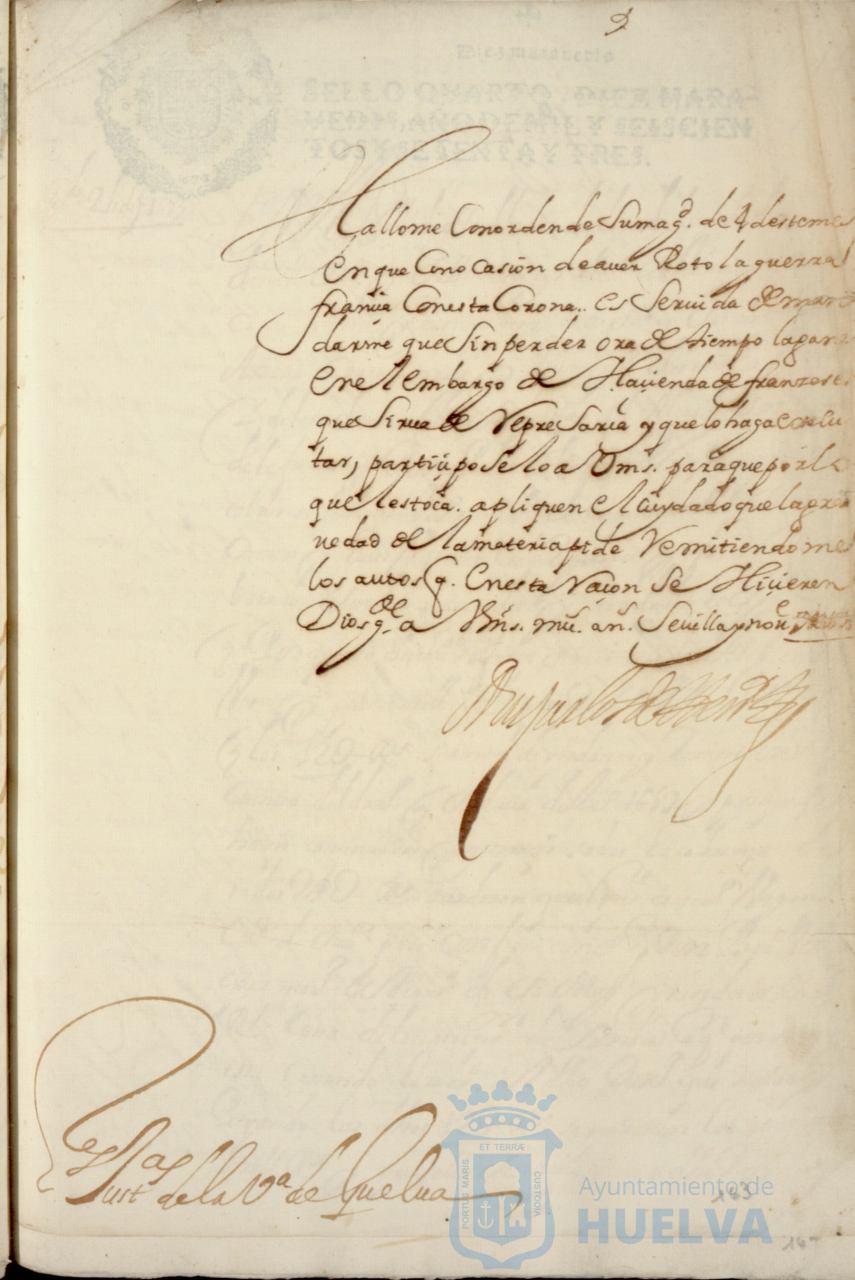 Hallome Con orden de Su mag.d de 4 deste mes
en que Con ocasion de aver Roto la guerra
francia Con esta Corona. es Servida de man
darme que Sin perder ora de tiempo la gan
en el embargo de Hacienda de franzeses
que Sirva de Represaria y que lo haga executar
tar, participoselo a Vms. para que por la
que les toca. apliquen el Cuydado que la gra
vedad de la materia pide Remitiendome
los autos q. en esta Raçon Se Hicieren
Dios g.de a Vms. mu.s an.s Sevilla y nov.e
SELLO QVARTO, DIEZ MARA-
VEDIS, AÑO DE MIL Y SEISCIEN
TOS Y SETENTA Y TRES.
Just.as de la V.a de Guelva
PORTUS MARIS
ET TERRÆ
CUSTODIA
Ayuntamiento de
HUELVA
163